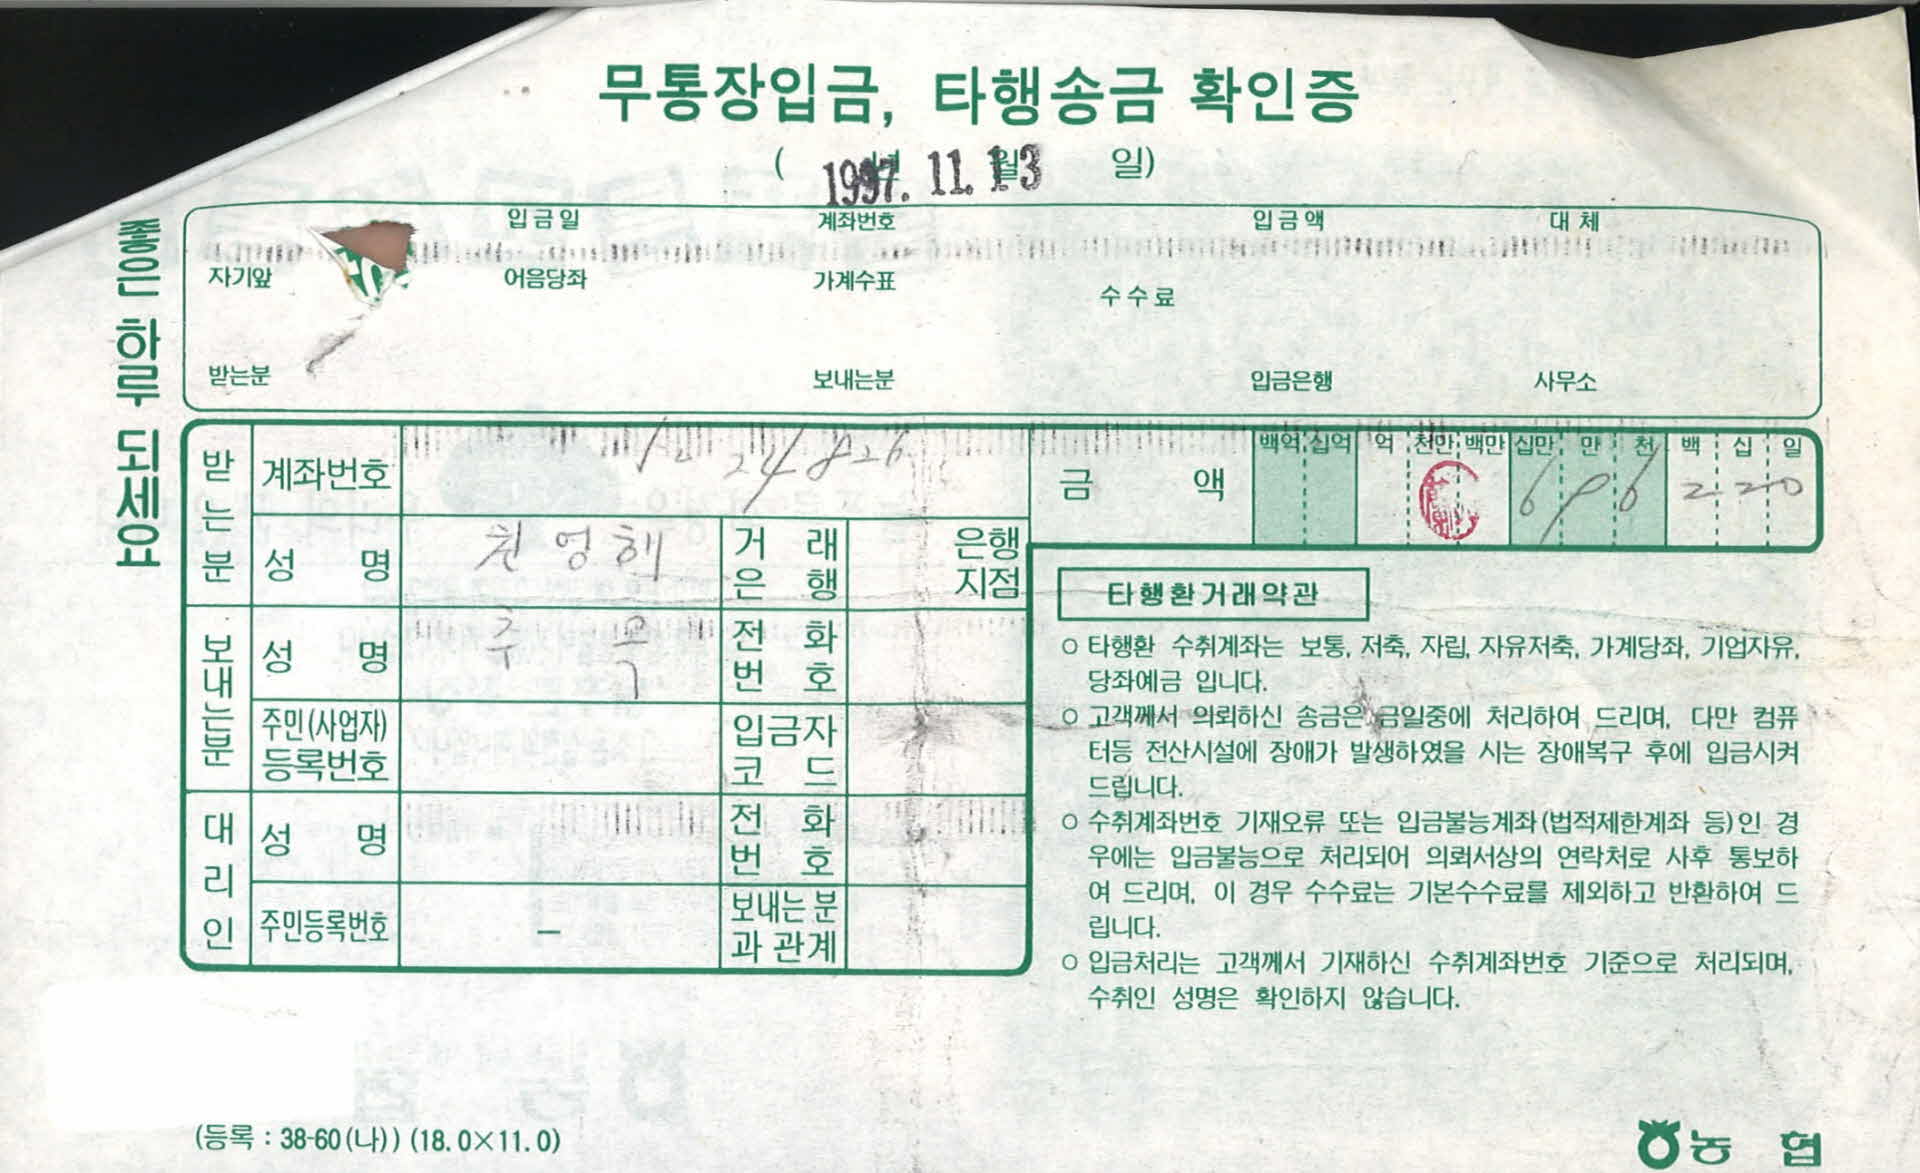 무통장입금, 타행송금 확인증
( 년 월 일)
1997. 11. 13
좋은 하루 되세요
입금일 계좌번호 입금액 대체
자기앞 어음당좌 가계수표 수수료
받는분 보내는분 입금은행 사무소
받는분 계좌번호 24826
금 액 백억 십억 억 천만 백만 십만 만 천 백 십 일
220
성 명 영해 거래은행 은행 지점
보내는분 성 명 전화번호
주민(사업자)등록번호 입금자코드
대리인 성 명 전화번호
주민등록번호 – 보내는분과 관계
타행환거래약관
○ 타행환 수취계좌는 보통, 저축, 자립, 자유저축, 가계당좌, 기업자유,
당좌예금 입니다.
○ 고객께서 의뢰하신 송금은 금일중에 처리하여 드리며, 다만 컴퓨
터등 전산시설에 장애가 발생하였을 시는 장애복구 후에 입금시켜
드립니다.
○ 수취계좌번호 기재오류 또는 입금불능계좌(법적제한계좌 등)인 경
우에는 입금불능으로 처리되어 의뢰서상의 연락처로 사후 통보하
여 드리며, 이 경우 수수료는 기본수수료를 제외하고 반환하여 드
립니다.
○ 입금처리는 고객께서 기재하신 수취계좌번호 기준으로 처리되며,
수취인 성명은 확인하지 않습니다.
(등록 : 38-60(나)) (18.0×11.0)
농 협